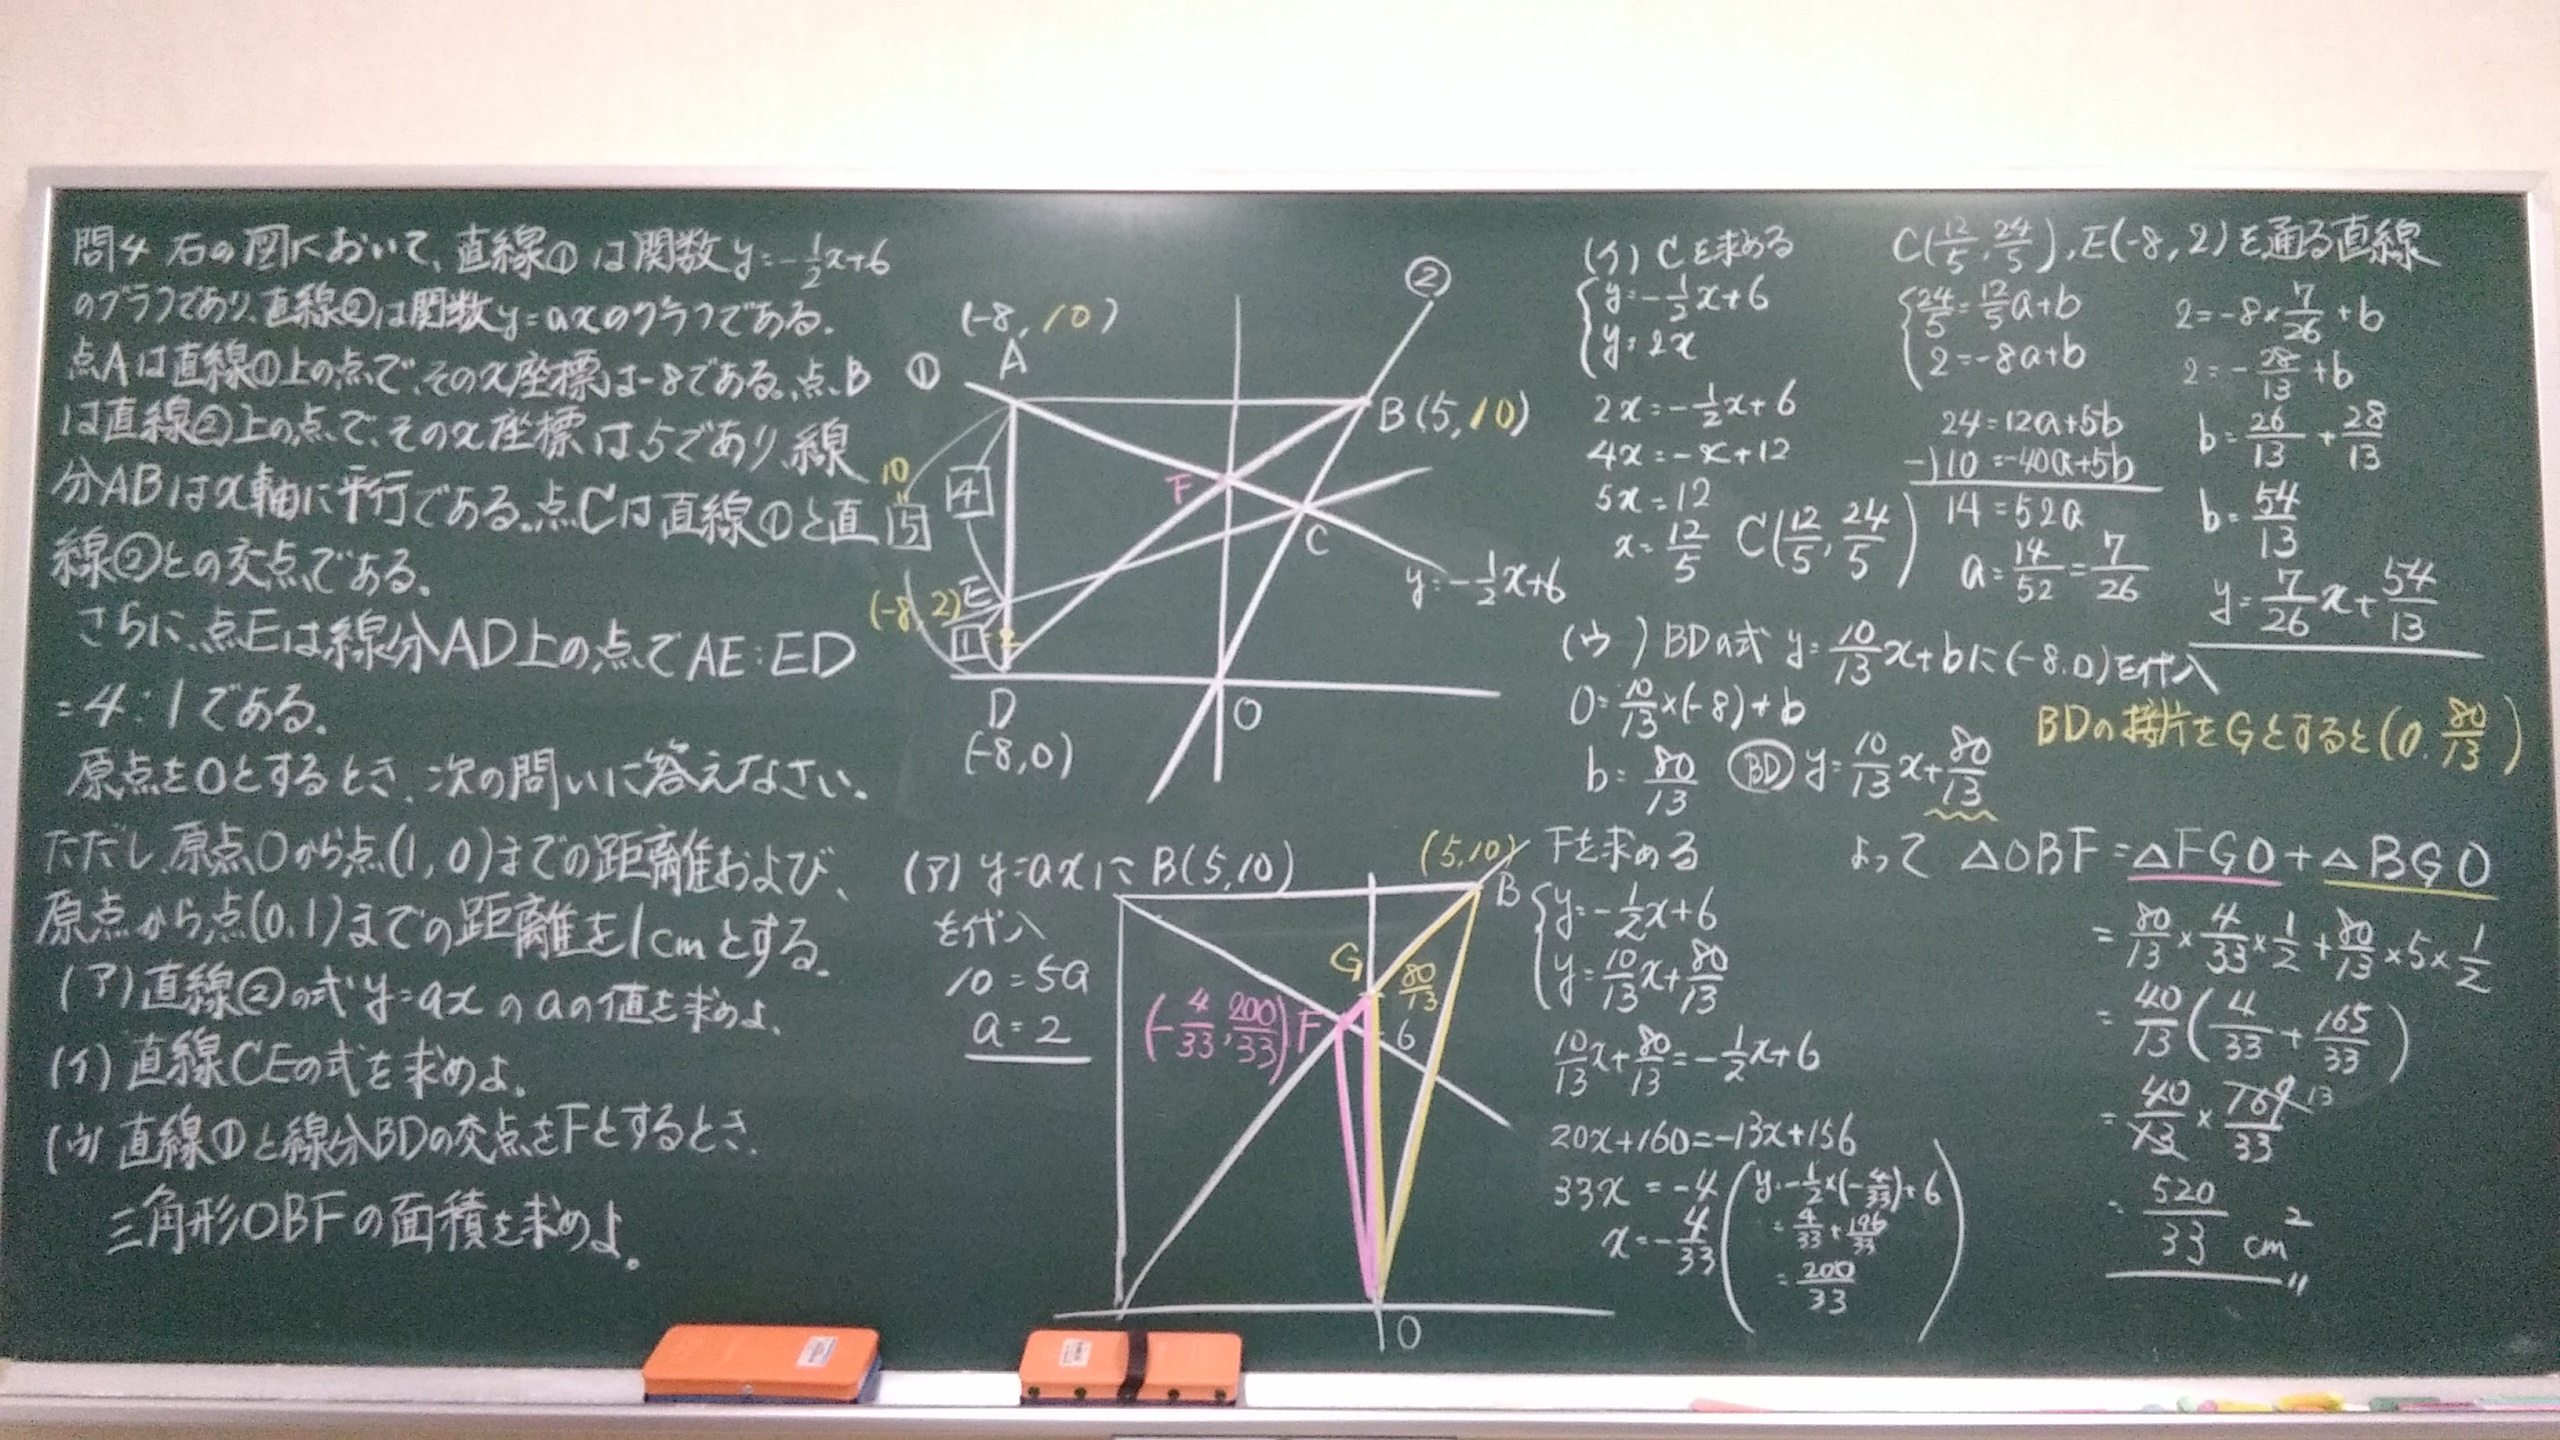 問4 右の図において、直線①は関数y=-1/2x+6
のグラフであり、直線②は関数y=axのグラフである。
点Aは直線①上の点で、そのx座標は-8である。点B
は直線②上の点で、そのx座標は5であり、線
分ABはx軸に平行である。点Cは直線①と直
線②との交点である。
さらに、点Eは線分AD上の点でAE:ED
=4:1である。
原点をOとするとき、次の問いに答えなさい。
ただし、原点Oから点(1,0)までの距離および、
原点から点(0,1)までの距離を1cmとする。
(ア)直線②の式y=axのaの値を求めよ。
(イ)直線CEの式を求めよ。
(ウ)直線①と線分BDの交点をFとするとき、
三角形OBFの面積を求めよ。
②
(-8,10)
①
A
B(5,10)
10
4
5
F
C
y=-1/2x+6
(-8,2)
E
1
2
D
O
(-8,0)
(ア)y=axにB(5,10)
を代入
10=5a
a=2
(5,10)
B
G
80/13
(-4/33,200/33)
F
6
O
(イ)Cを求める
y=-1/2x+6
y=2x
2x=-1/2x+6
4x=-x+12
5x=12
x=12/5
C(12/5,24/5)
C(12/5,24/5),E(-8,2)を通る直線
24/5=12/5a+b
2=-8a+b
24=12a+5b
-)10=-40a+5b
14=52a
a=14/52=7/26
2=-8×7/26+b
2=-28/13+b
b=26/13+28/13
b=54/13
y=7/26x+54/13
(ウ)BDの式y=10/13x+bに(-8,0)を代入
0=10/13×(-8)+b
b=80/13
BD y=10/13x+80/13
BDの接片をGとすると(0,80/13)
Fを求める
y=-1/2x+6
y=10/13x+80/13
10/13x+80/13=-1/2x+6
20x+160=-13x+156
33x=-4
x=-4/33
(y=-1/2×(-4/33)+6
=200/33)
よって △OBF=△FGO+△BGO
=80/13×4/33×1/2+80/13×5×1/2
=40/13(4/33+165/33)
=40/13×169/33
13
=520/33 cm²